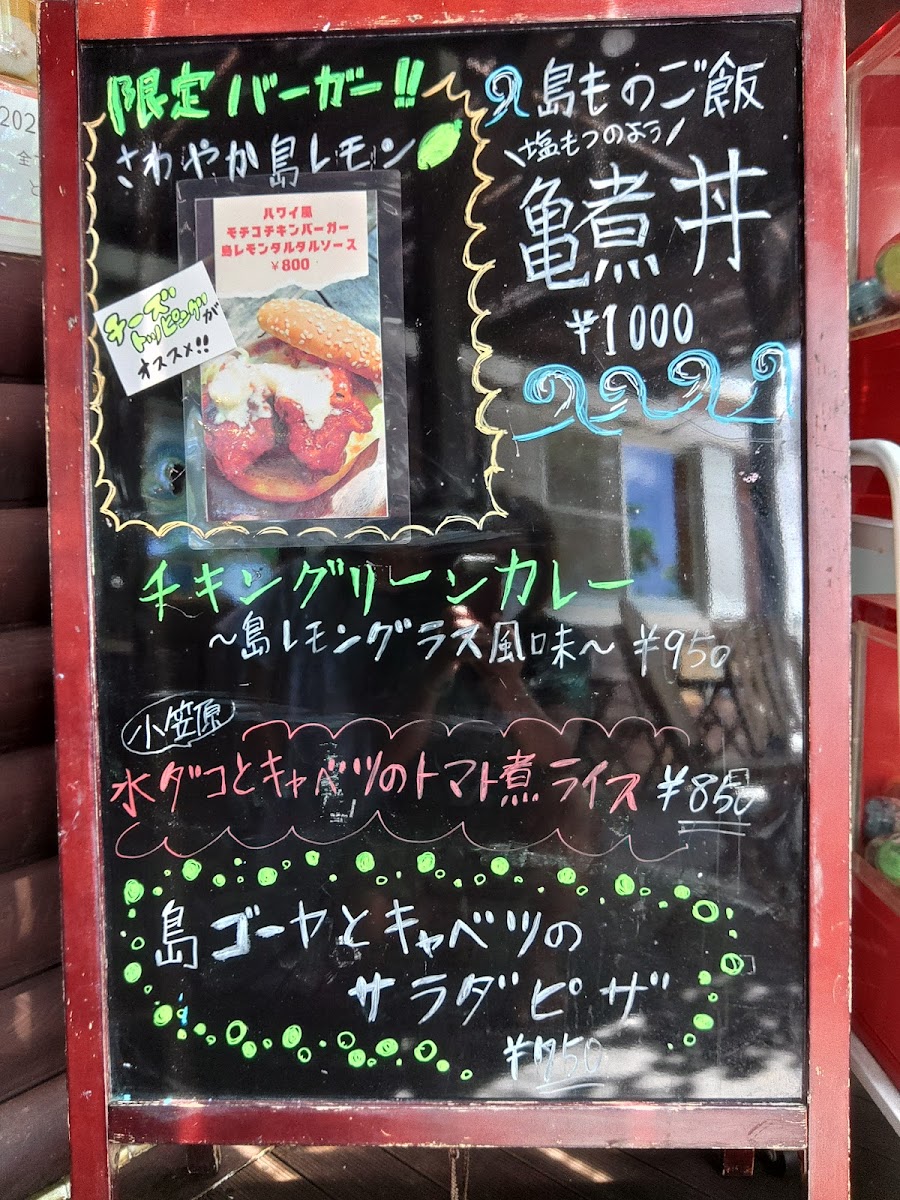 限定バーガー!!
さわやか島レモン
ハワイ風
モチコチキンバーガー
島レモンタルタルソース
¥800
チーズ
トッピングが
オススメ!!
島ものご飯
\塩もつのよう/
亀煮丼
¥1000
チキングリーンカレー
~島レモングラス風味~ ¥950
小笠原
水ダコとキャベツのトマト煮ライス ¥850
島ゴーヤとキャベツの
サラダピザ
¥750
202